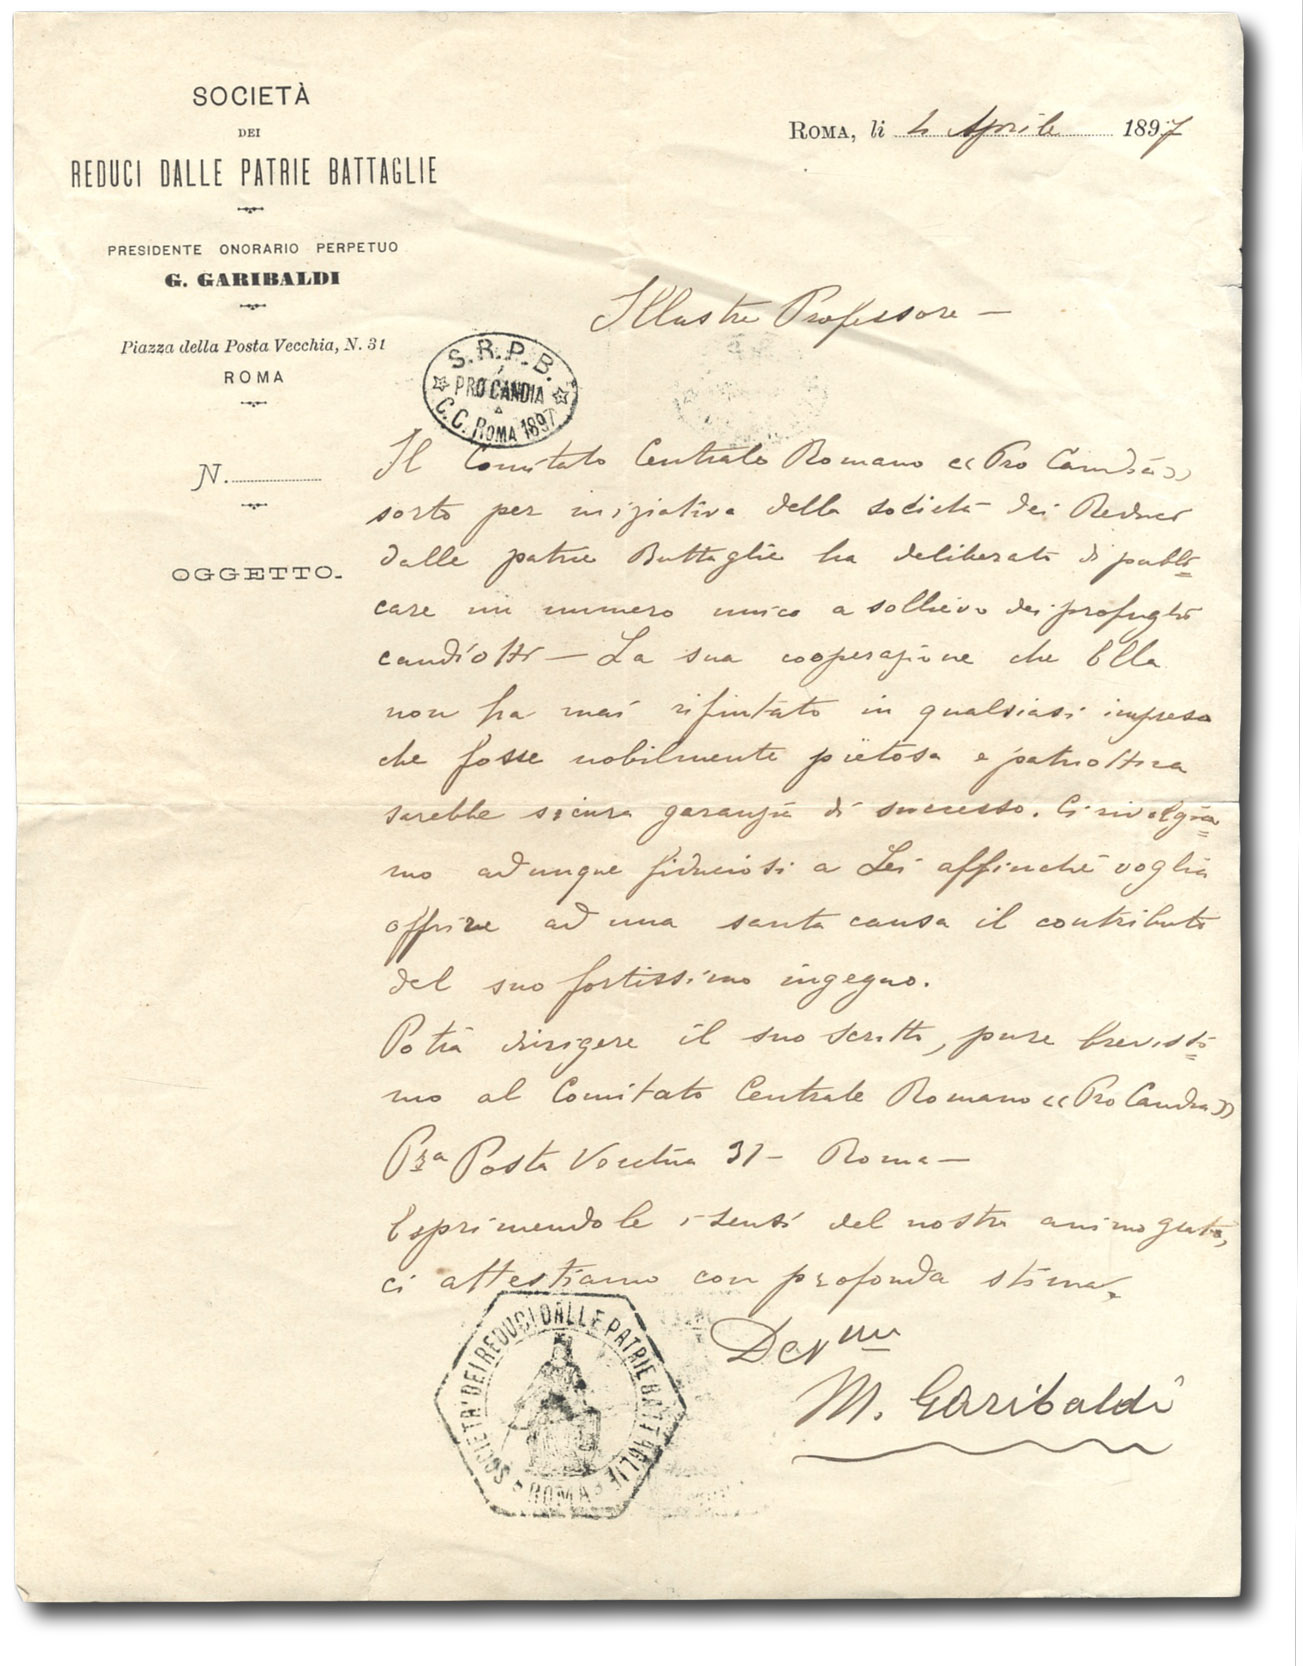 SOCIETÀ
DEI
REDUCI DALLE PATRIE BATTAGLIE
PRESIDENTE ONORARIO PERPETUO
G. GARIBALDI
Piazza della Posta Vecchia, N. 31
ROMA
N.
OGGETTO.
ROMA, li 4 Aprile 1897
Illustre Professore —
S.R.P.B.
PRO CANDIA
C.C. ROMA 1897
Il Comitato Centrale Romano «Pro Candia»
sorto per iniziativa della società dei Reduci
dalle patrie Battaglie ha deliberato di publi=
care un numero unico a sollievo dei profughi
candiotti — La sua cooperazione che Ella
non ha mai rifiutato in qualsiasi impresa
che fosse nobilmente pietosa e patriottica
sarebbe sicura garanzia di successo. Ci rivolgia=
mo adunque fiduciosi a Lei affinché voglia
offrire ad una santa causa il contributo
del suo fortissimo ingegno.
Potrà dirigere il suo scritto, pure brevissi=
mo al Comitato Centrale Romano «Pro Candia»
Pza Posta Vecchia 31 — Roma —
Esprimendole i sensi del nostro animo grato,
ci attestiamo con profonda stima.
Devmi
M. Garibaldi
SOCIETA' DEI REDUCI DALLE PATRIE BATTAGLIE
ROMA